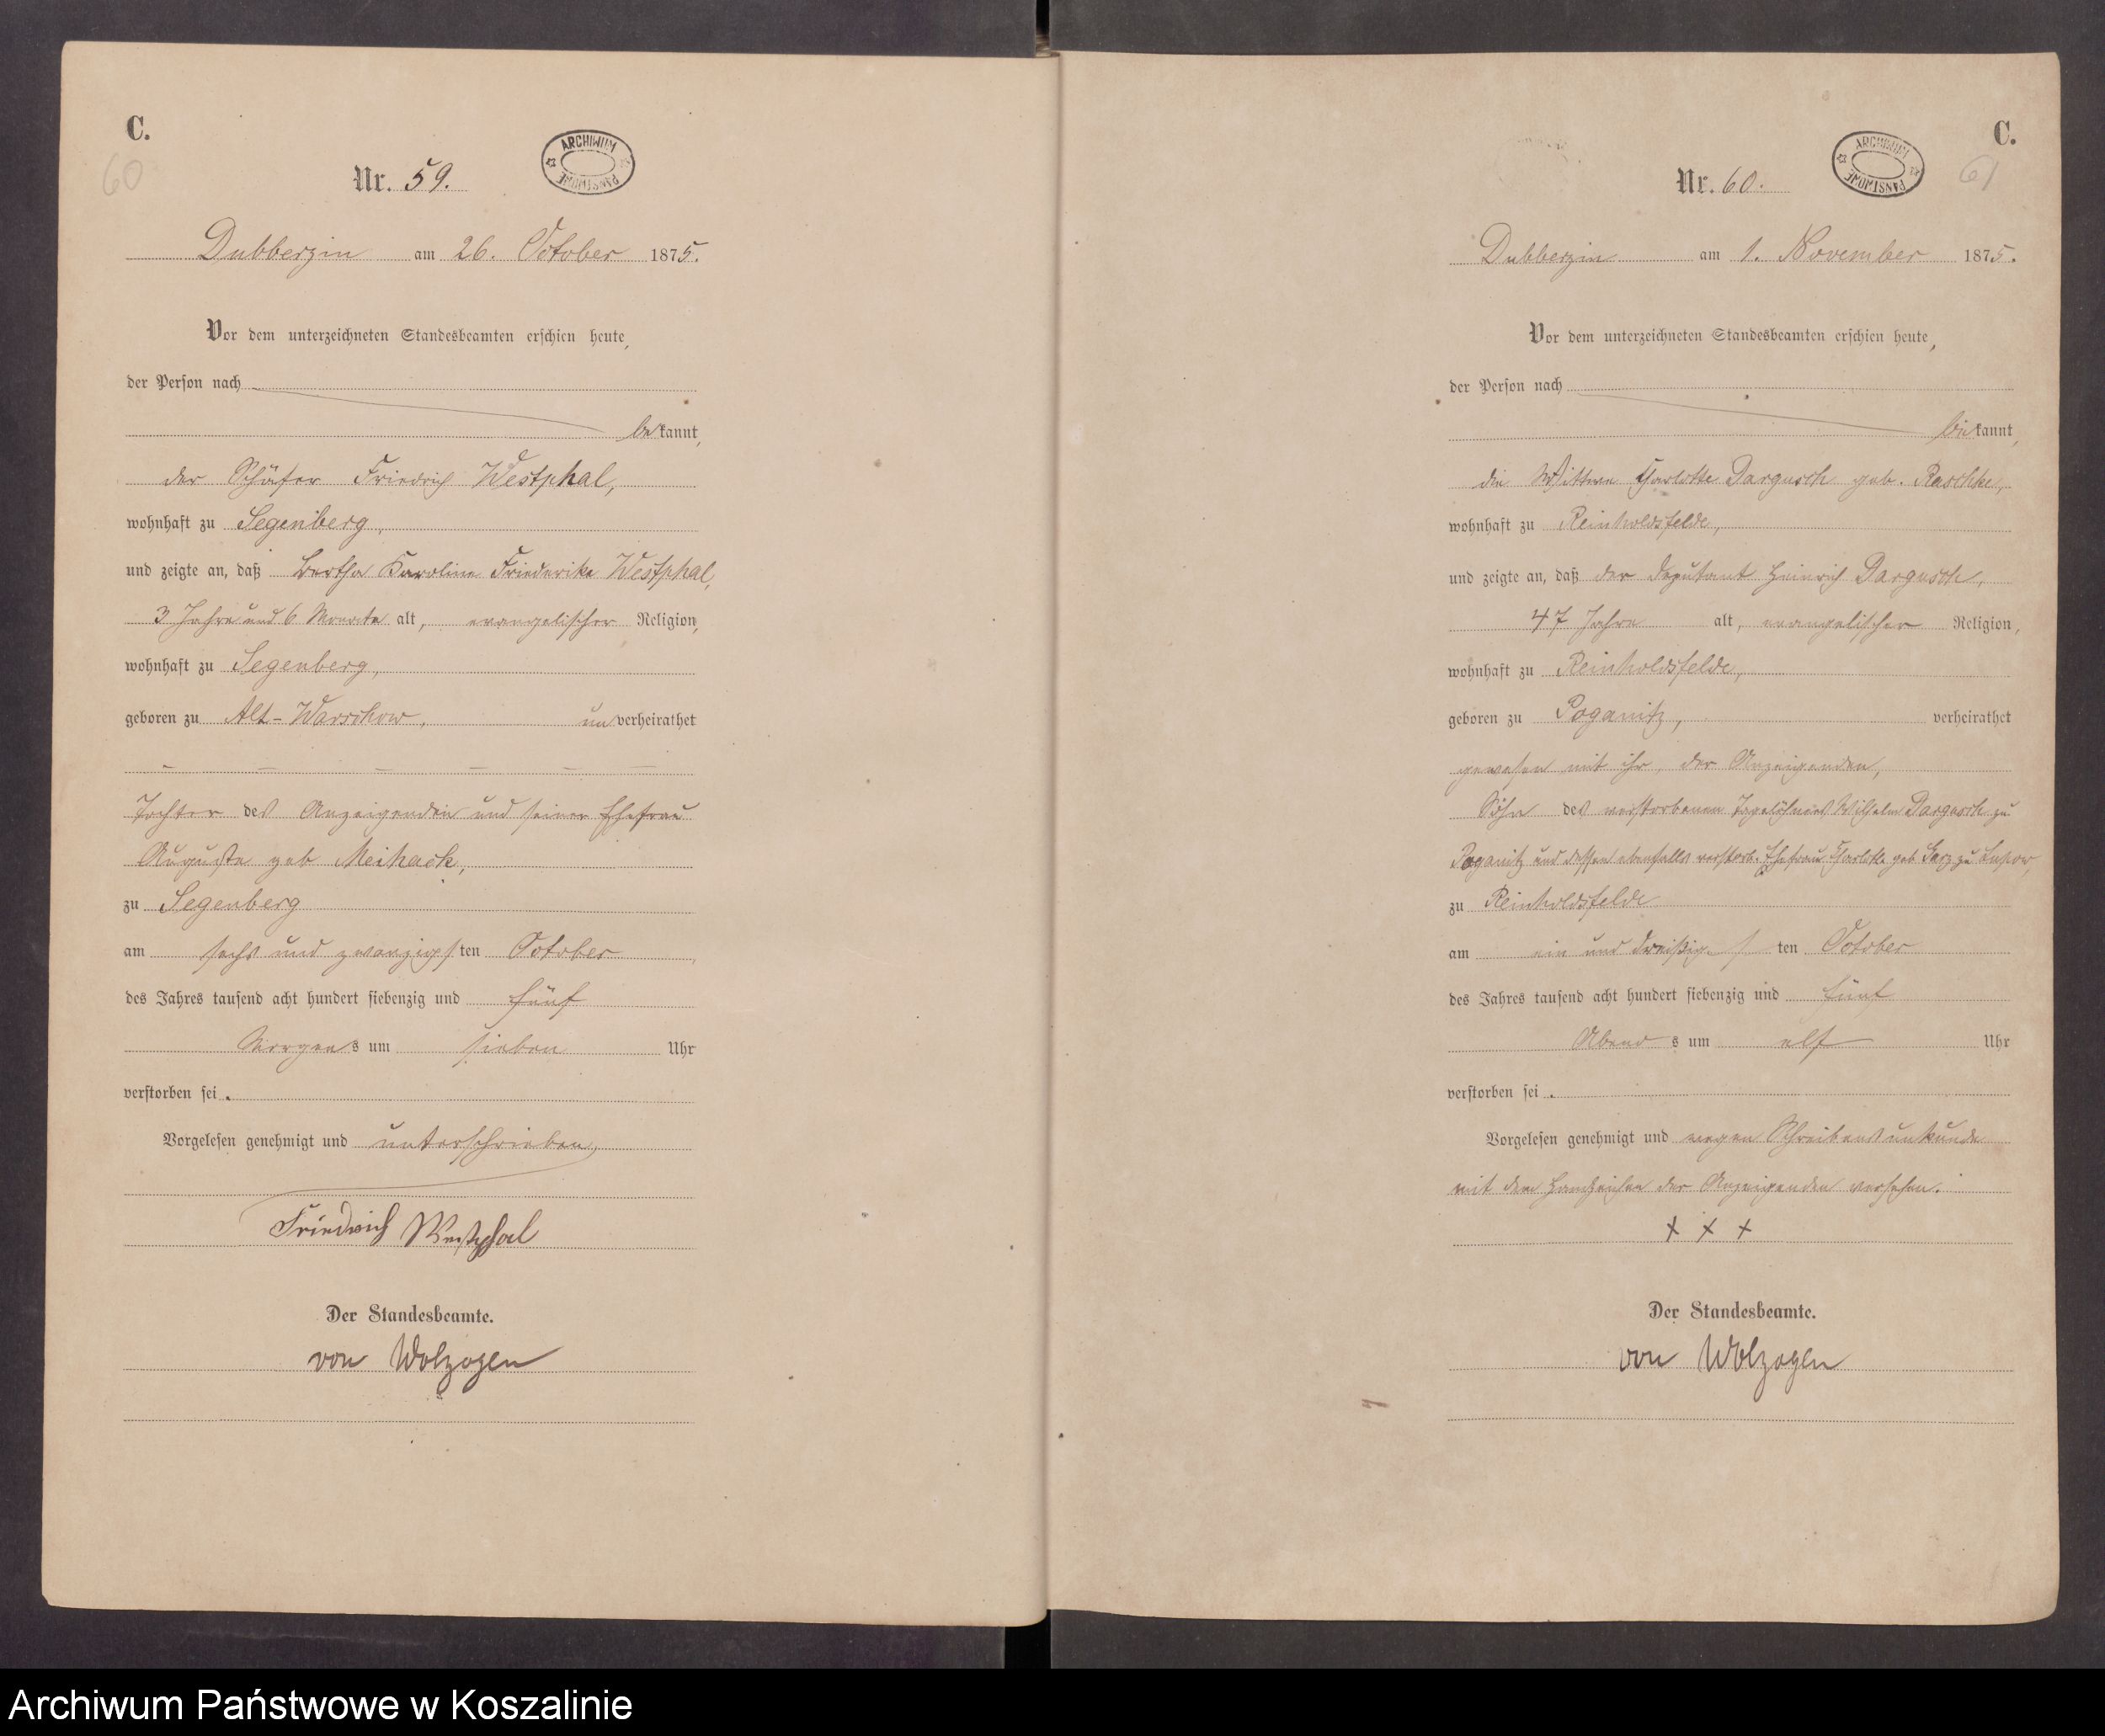 C.
60
Nr. 59.
ARCHIWUM PAŃSTWOWE
Dubberzin am 26. October 1875.
Vor dem unterzeichneten Standesbeamten erschien heute,
der Person nach
bekannt,
der Schäfer Friedrich Westphal,
wohnhaft zu Segenberg,
und zeigte an, daß Bertha Karoline Friederike Westphal,
3 Jahre und 6 Monate alt, evangelischer Religion,
wohnhaft zu Segenberg,
geboren zu Alt-Warschow, unverheirathet
Tochter des Anzeigenden und seiner Ehefrau
Auguste geb Meihack,
zu Segenberg
am sechs und zwanzigsten October
des Jahres tausend acht hundert siebenzig und fünf
Morgens um sieben Uhr
verstorben sei.
Vorgelesen genehmigt und unterschrieben
Friedrich Westphal
Der Standesbeamte.
von Wolzogen
C.
61
Nr. 60.
ARCHIWUM PAŃSTWOWE
Dubberzin am 1. November 1875.
Vor dem unterzeichneten Standesbeamten erschien heute,
der Person nach
bekannt,
die Wittwe Charlotte Dargusch geb. Raschke,
wohnhaft zu Reinholdsfelde,
und zeigte an, daß der Deputant Heinrich Dargusch,
47 Jahre alt, evangelischer Religion,
wohnhaft zu Reinholdsfelde,
geboren zu Poganitz, verheirathet
gewesen mit ihr, der Anzeigenden,
Sohn des verstorbenen Tagelöhners Wilhelm Dargusch zu
Poganitz und dessen ebenfalls verstorb. Ehefrau Charlotte geb Garz zu Lupow,
zu Reinholdsfelde
am ein und dreißigsten October
des Jahres tausend acht hundert siebenzig und fünf
Abends um elf Uhr
verstorben sei.
Vorgelesen genehmigt und wegen Schreibensunkunde
mit dem Handzeichen der Anzeigenden versehen.
x x x
Der Standesbeamte.
von Wolzogen
Archiwum Państwowe w Koszalinie